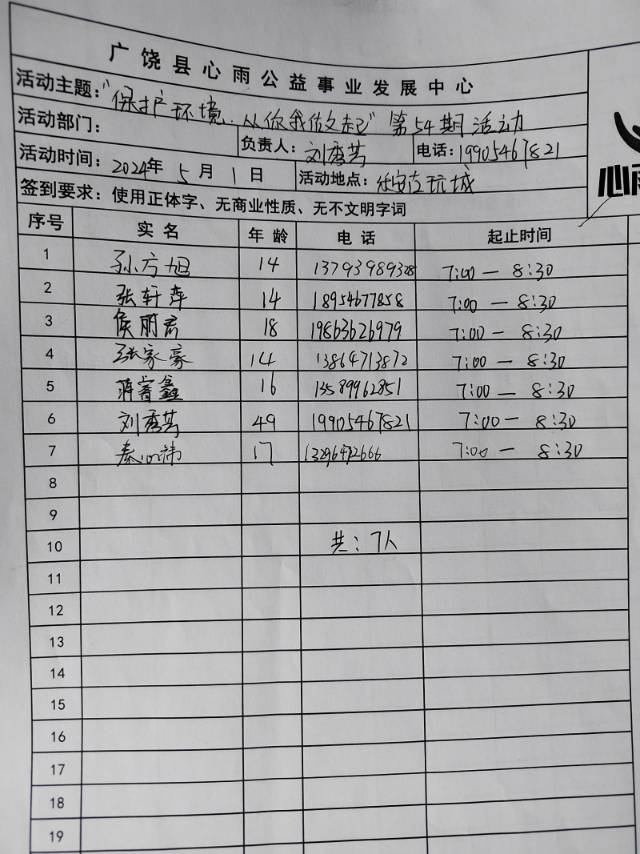 广饶县心雨公益事业发展中心
活动主题:“保护环境,从你我做起”第54期活动
活动部门: 负责人: 刘秀芳 电话: 19905467821
活动时间: 2024年 5 月 1 日 活动地点: 乐安古玩城
签到要求: 使用正体字、无商业性质、无不文明字词
心雨
序号 实名 年龄 电话 起止时间
1 孙方旭 14 13793989328 7:00 — 8:30
2 张轩萍 14 18954677858 7:00 — 8:30
3 侯丽君 18 19863626979 7:00 — 8:30
4 张家豪 14 13864713872 7:00 — 8:30
5 鑫 16 13589962851 7:00 — 8:30
6 刘秀芳 49 19905467821 7:00 — 8:30
7 秦 17 13296472666 7:00 — 8:30
8
9
10 共:7人
11
12
13
14
15
16
17
18
19